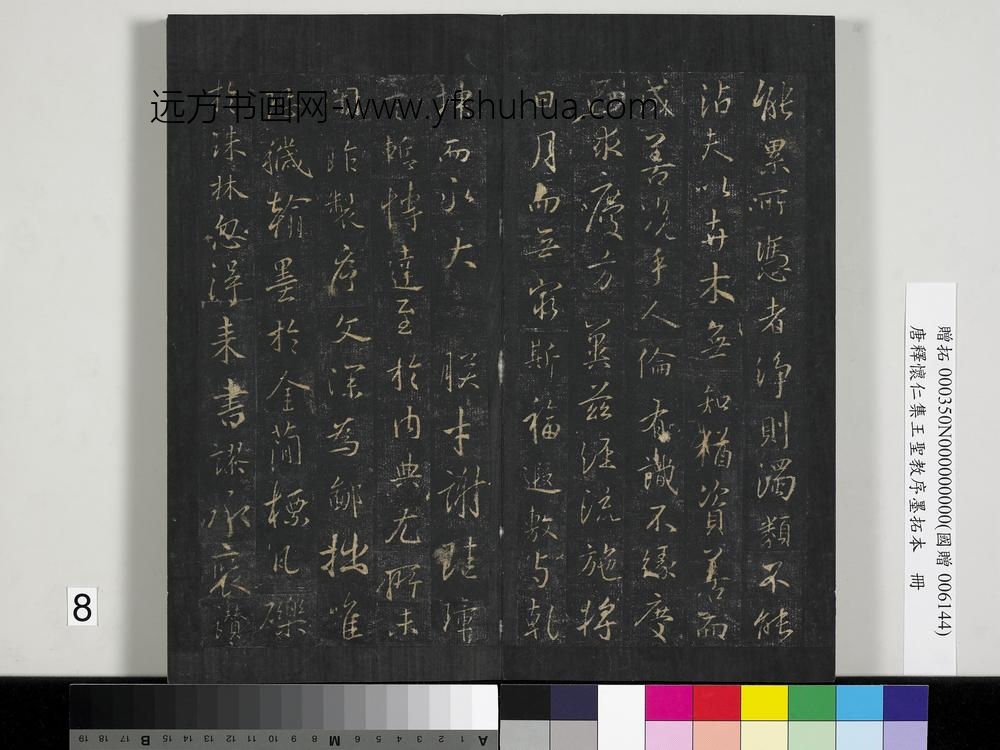 能累所憑者淨則濁類不能
沾夫以卉木無知猶資善而
成善況乎人倫有識不緣慶
而求慶方冀茲經流施將
日月而無窮斯福遐敷与乾
坤而永大 朕才謝珪璋
言慙博達至於內典尤所未
閑昨製序文深為鄙拙唯
恐穢翰墨於金簡標瓦礫
於珠林忽得来書謬承褒讚
远方书画网-www.yfshuhua.com
贈拓 000350N000000000(國贈 006144)
唐釋懷仁集王聖教序墨拓本 冊
8
A 1 2 3 4 5 6 7 M 8 9 10 11 12 13 14 15 B 16 17 18 19